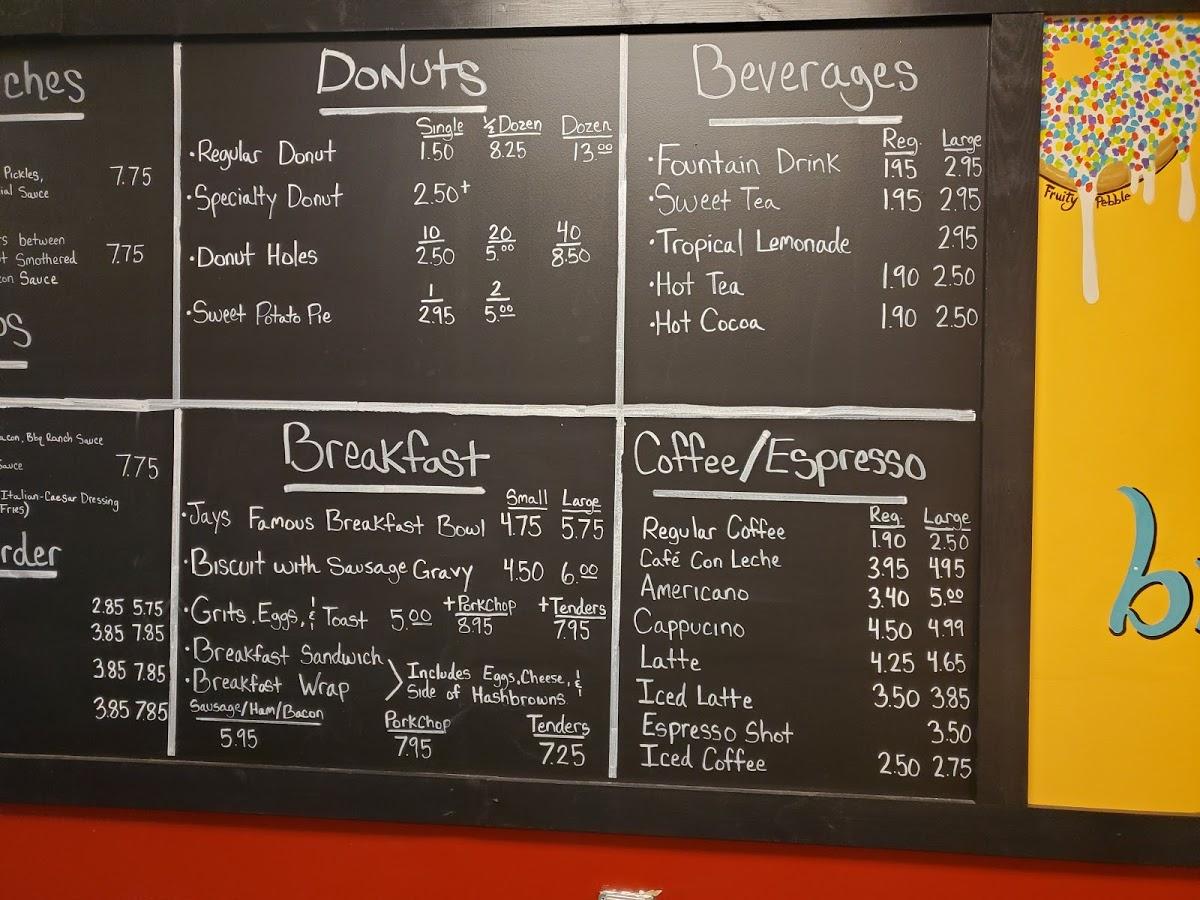 ches
Pickles,
ial Sauce
7.75
s between
t Smothered
on Sauce
7.75
os
acon, Bbq Ranch Sauce
Sauce
7.75
Italian-Caesar Dressing
Fries)
rder
2.85 5.75
3.85 7.85
3.85 7.85
3.85 7.85
Donuts
Single ½ Dozen Dozen
•Regular Donut 1.50 8.25 13.00
•Specialty Donut 2.50+
10 20 40
•Donut Holes 2.50 5.00 8.50
1 2
•Sweet Potato Pie 2.95 5.00
Beverages
Reg. Large
•Fountain Drink 1.95 2.95
•Sweet Tea 1.95 2.95
•Tropical Lemonade 2.95
•Hot Tea 1.90 2.50
•Hot Cocoa 1.90 2.50
Breakfast
Small Large
•Jays Famous Breakfast Bowl 4.75 5.75
•Biscuit with Sausage Gravy 4.50 6.00
•Grits, Eggs, & Toast 5.00 +PorkChop 8.95 +Tenders 7.95
•Breakfast Sandwich
•Breakfast Wrap
Includes Eggs, Cheese, &
Side of Hashbrowns
Sausage/Ham/Bacon PorkChop Tenders
5.95 7.95 7.25
Coffee/Espresso
Reg. Large
Regular Coffee 1.90 2.50
Café Con Leche 3.95 4.95
Americano 3.40 5.00
Cappucino 4.50 4.99
Latte 4.25 4.65
Iced Latte 3.50 3.85
Espresso Shot 3.50
Iced Coffee 2.50 2.75
Fruity Pebble
b